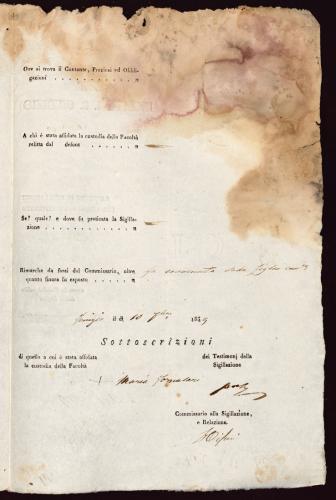 Ove si trova il Contante, Preziosi ed Obbli-
gazioni . . . . . . . . . . . . "
A chi è stata affidata la custodia della Facoltà
relitta dal defonto . . . . . . . . . "
Se? quale? e dove fu praticata la Sigilla-
zione . . . . . . . . . . . . "
Rimarche da farsi dal Commissario, oltre
quanto finora fu esposto . . . . . . "
il dì 10 184
Sottoscrizioni
di quello a cui è stata affidata
la custodia della Facoltà
dei Testimonj della
Sigillazione
Maria
Commissario alla Sigillazione,
e Relazione.